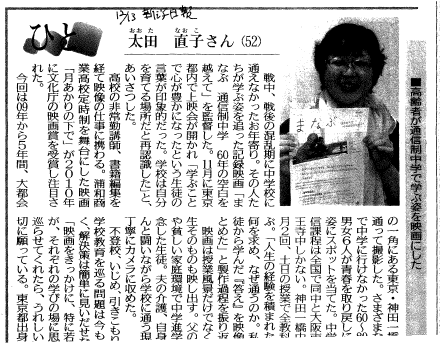 ひと
太田 直子さん（52）
おおた なおこ
■高齢者が通信制中学で学ぶ姿を映画にした
まなぶ
戦中、戦後の混乱期に中学校に
通えなかったお年寄り。その人た
ちが学ぶ姿を追った記録映画「ま
なぶ 通信制中学 60年の空白を
越えて」を監督した。11月に東京
都内で上映会が開かれ「学ぶこと
で心が豊かになったという生徒の
言葉が印象的だった。学校は自分
を育てる場所だと再認識した」と
あいさつした。
高校の非常勤講師、書籍編集を
経て映像の仕事に携わる。浦和商
業高校定時制を舞台にした映画
「月あかりの下で」が2010年
に文化庁の映画賞を受賞し注目さ
れた。
今回は09年から5年間、大都会
の一角にある東京・神田一橋
通って撮影した。さまざまな
で中学に行けなかった60〜80
男女6人が青春を取り戻した
姿にスポットを当てた。中学
信課程は全国で同中と大阪市
王寺中しかない。神田一橋中
月2回、土日の授業で全教科
ぶ。「人生の経験を積まれた
何を求め、なぜ通うのか。私
徒から学んだ『答え』を映像
とめた」と製作過程を振り返
映画は授業風景だけでなく
生そのものも映し出す。父の
や貧しい家庭環境で中学進学
念した生徒。夫の介護、自身
んと闘いながら学校に通う現
丁寧にカメラに収めた。
不登校、いじめ、引きこもり
学校教育を巡る問題は今も
く、解決策は簡単に見いだせ
「映画をきっかけに、特に若
が、それぞれの学びの場に思
巡らせてくれたら、うれしい
切に願っている。東京都出身